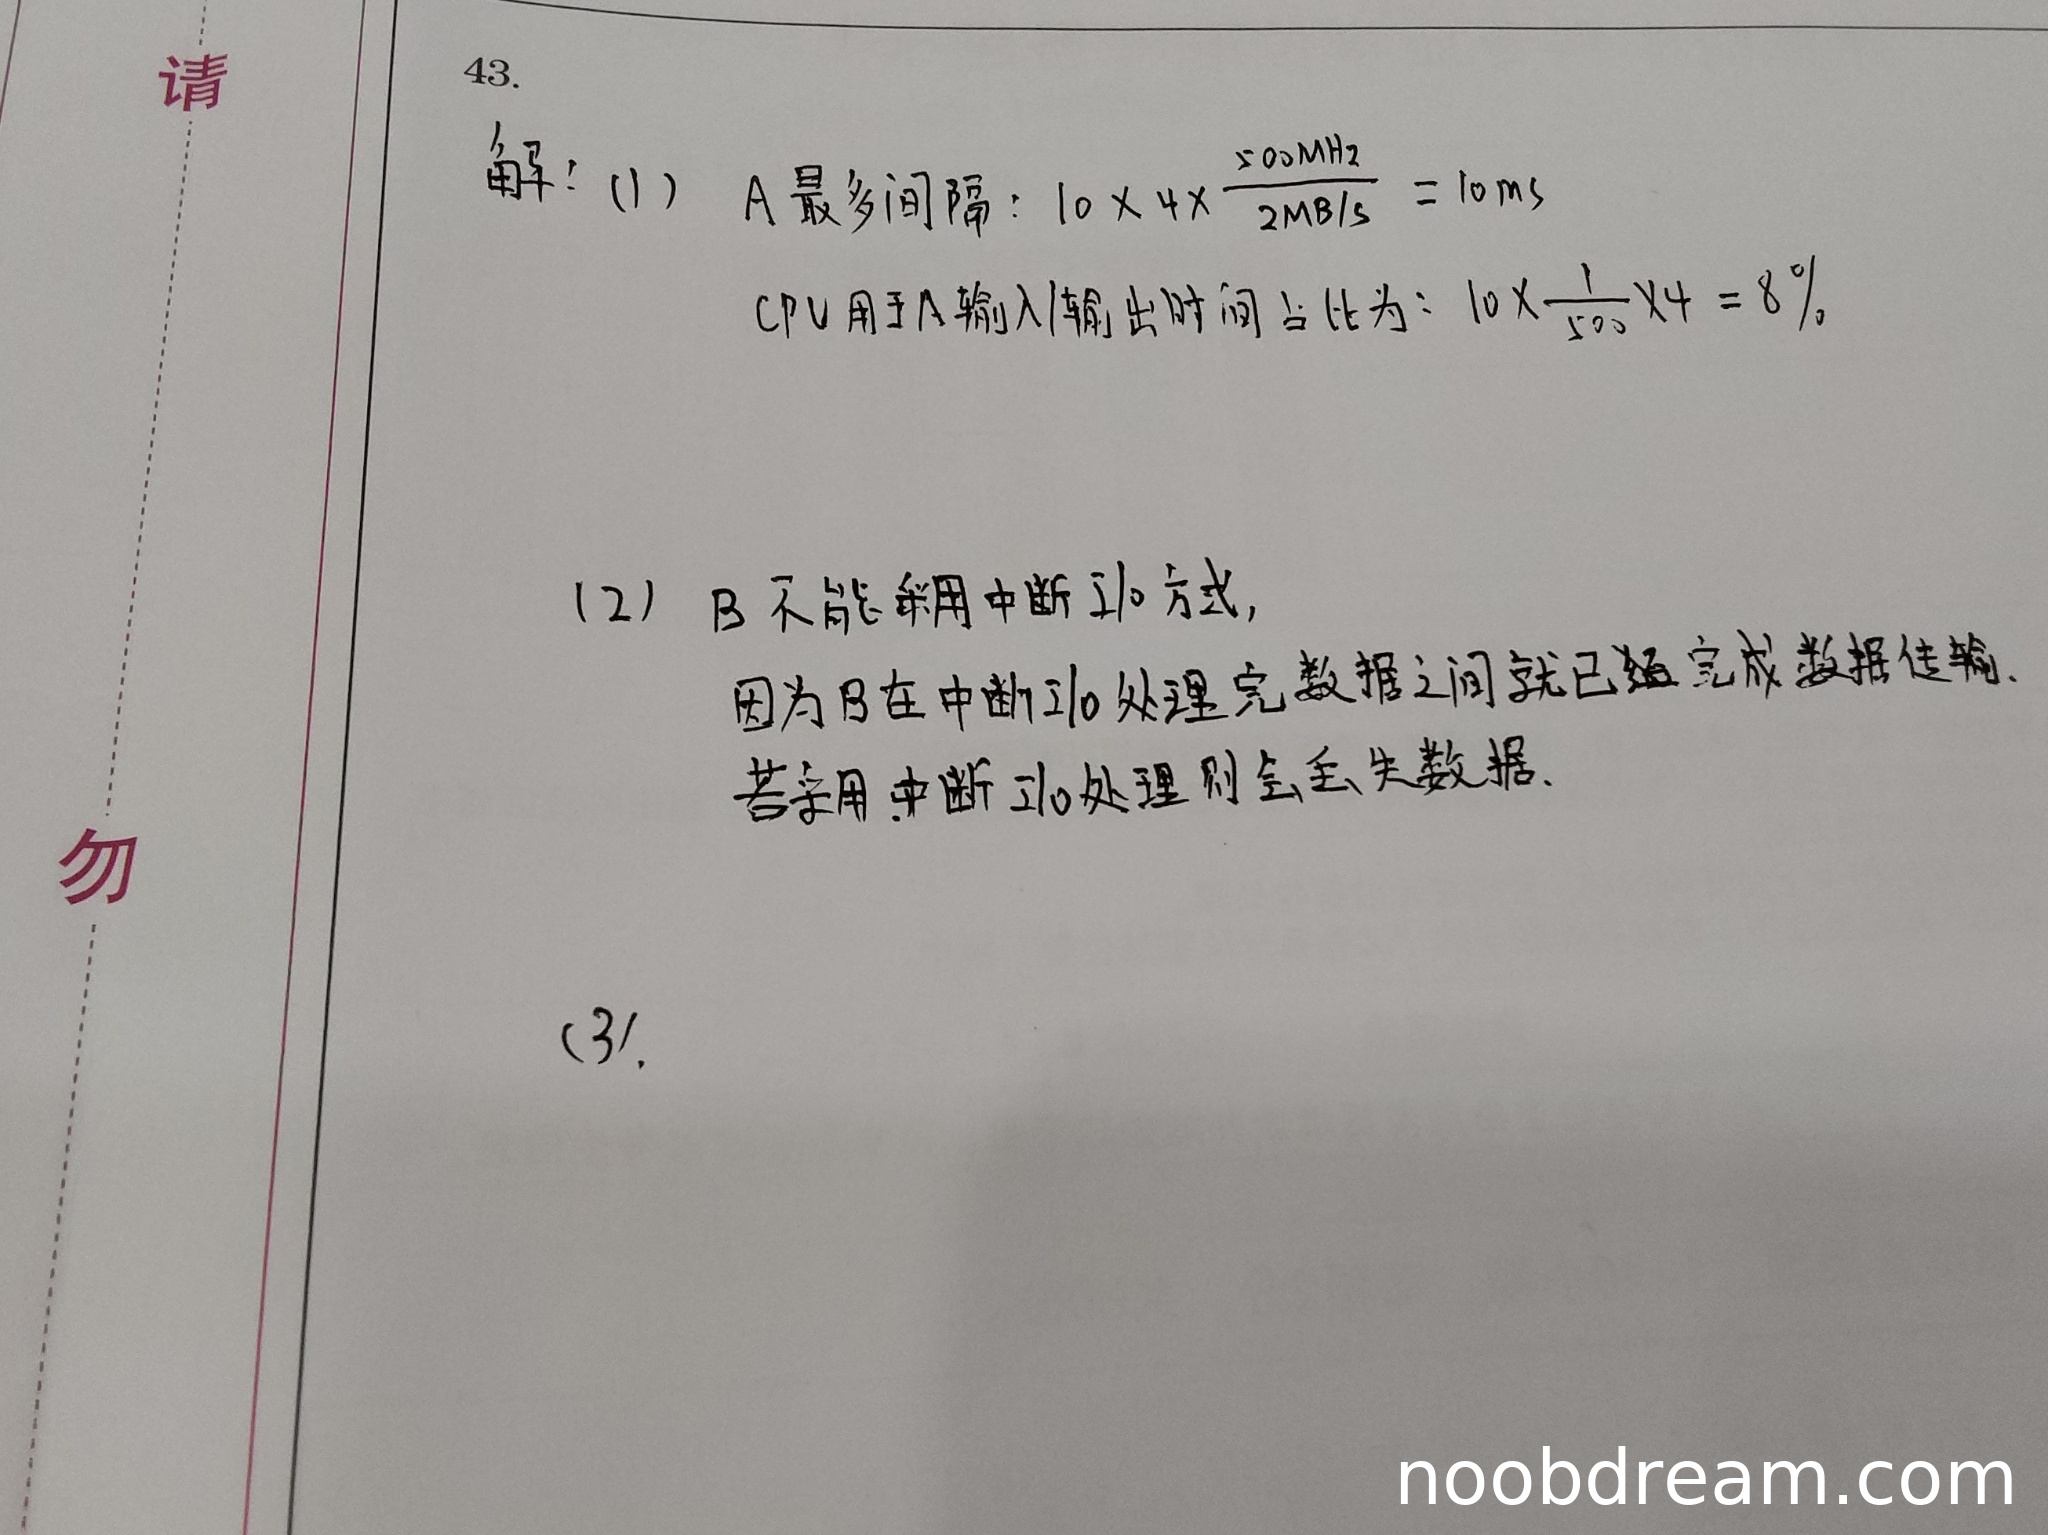 请
勿
43.
解：(1) A最多间隔：10×4×500MHz/2MB/s = 10ms
CPU用于A输入/输出时间占比为：10×1/500×4 = 8%
(2) B不能采用中断I/O方式,
因为B在中断I/O处理完数据之间就已经完成数据传输.
若采用中断I/O处理则会丢失数据.
(3).
noobdream.com